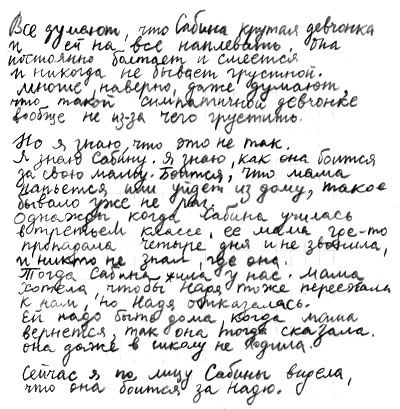 Все думают, что Сабина крутая девчонка
и ей на все наплевать, она
постоянно болтает и смеется
и никогда не бывает грустной.
Многие, наверно, даже думают,
что такой симпатичной девчонке
вообще не из-за чего грустить.
Но я знаю, что это не так.
Я знаю Сабину. Я знаю, как она боится
за свою маму. Боится, что мама
напьется или уйдет из дому, такое
бывало уже не раз.
Однажды когда Сабина училась
в третьем классе, ее мама где-то
пропадала четыре дня и не звонила,
и никто не знал, где она.
Тогда Сабина жила у нас. Мама
хотела, чтобы Надя тоже переехала
к нам, но Надя отказалась.
Ей надо быть дома, когда мама
вернется, так она тогда сказала.
она даже в школу не ходила.
Сейчас я по лицу Сабины видела,
что она боится за Надю.